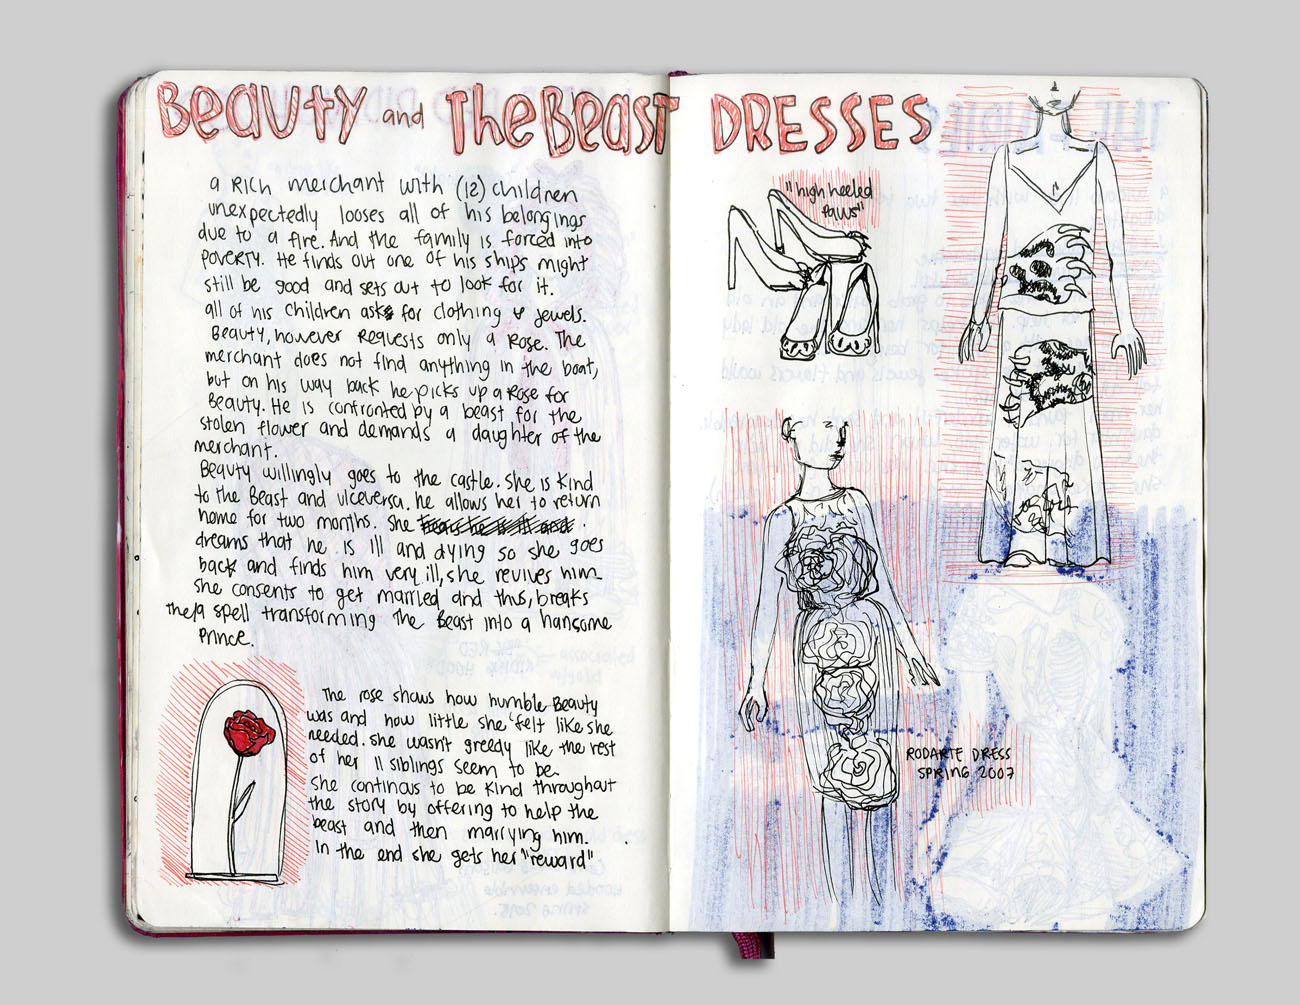 Beauty and The Beast DRESSES
a Rich merchant with (12) children
unexpectedly looses all of his belongings
due to a fire. And the family is forced into
poverty. He finds out one of his ships might
still be good and sets out to look for it.
all of his children ask for clothing & jewels.
Beauty, however requests only a Rose. The
merchant does not find anything in the boat,
but on his way back he picks up a Rose for
Beauty. He is confronted by a beast for the
stolen flower and demands a daughter of the
merchant.
Beauty willingly goes to the castle. She is kind
to the Beast and viceversa. he allows her to return
home for two months. She
dreams that he is ill and dying so she goes
back and finds him very ill, she revives him
she consents to get married and thus, breaks
the spell transforming the Beast into a hansome
Prince.
The rose shows how humble Beauty
was and how little she felt like she
needed. She wasn't greedy like the rest
of her 11 siblings seem to be.
She continous to be kind throughout
the story by offering to help the
beast and then marrying him.
In the end she gets her "reward"
"high heeled
Paws"
RODARTE DRESS
SPRING 2007